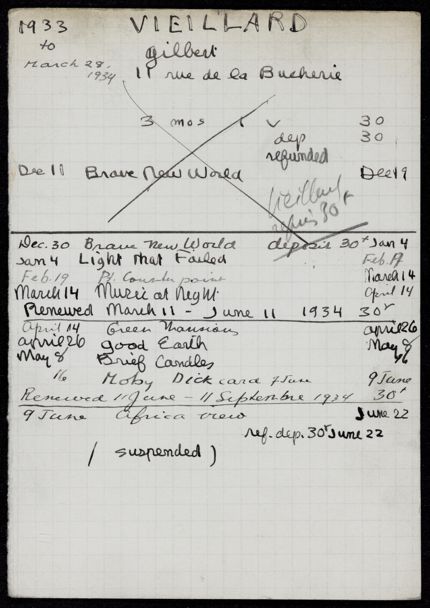 1933 VIEILLARD
to Gilbert
March 28, 1934
11 rue de la Bucherie
3 mos 1 v 30
dep 30
refunded
Dec 11 Brave New World Dec 19
Vieillard
30 f
Dec. 30 Brave New World deposit 30f Jan 4
Jan 4 Light that Failed Feb. 19
Feb. 19 Pt. Counter point March 14
March 14 Music at Night April 14
Renewed March 11 - June 11 1934 30f
April 14 Green Mansions april 26
april 26 Good Earth May 8
May 8 Brief Candles 16
16 Moby Dick card 9 June 9 June
Renewed 11 June - 11 Septembre 1934 30f
9 June Africa view June 22
ref. dep. 30f June 22
( suspended )